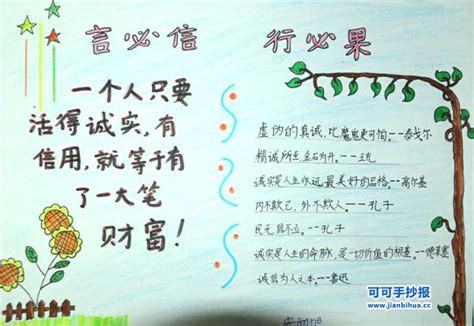 言必信 行必果
一个人只要
活得诚实,有
信用,就等于有
了一大笔
财富!
虚伪的真诚,比魔鬼更可怕。--泰戈尔
精诚所至,金石为开。--王充
诚实是人生永远最美好的品格。--高尔基
内不欺己,外不欺人。--孔子
民无信不立。--孔子
诚实是人生的命脉,是一切价值的根基。--德莱塞
诚信为人之本。--鲁迅
可可手抄报
www.jianbihua.cc